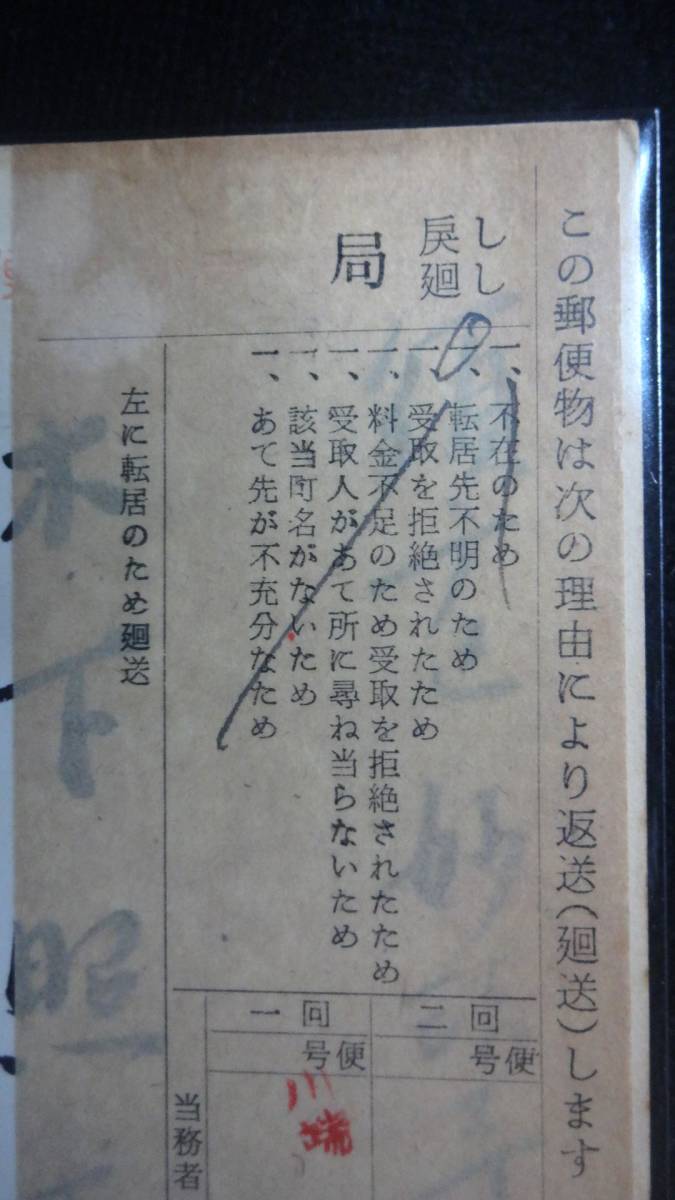 この郵便物は次の理由により返送(廻送)します
しし
戻廻
局
一、不在のため
一、転居先不明のため
一、受取を拒絶されたため
一、料金不足のため受取を拒絶されたため
一、受取人があて所に尋ね当らないため
一、該当町名がないため
一、あて先が不充分なため
左に転居のため廻送
二回
便号
一回
便号
川端
当務者
木下照